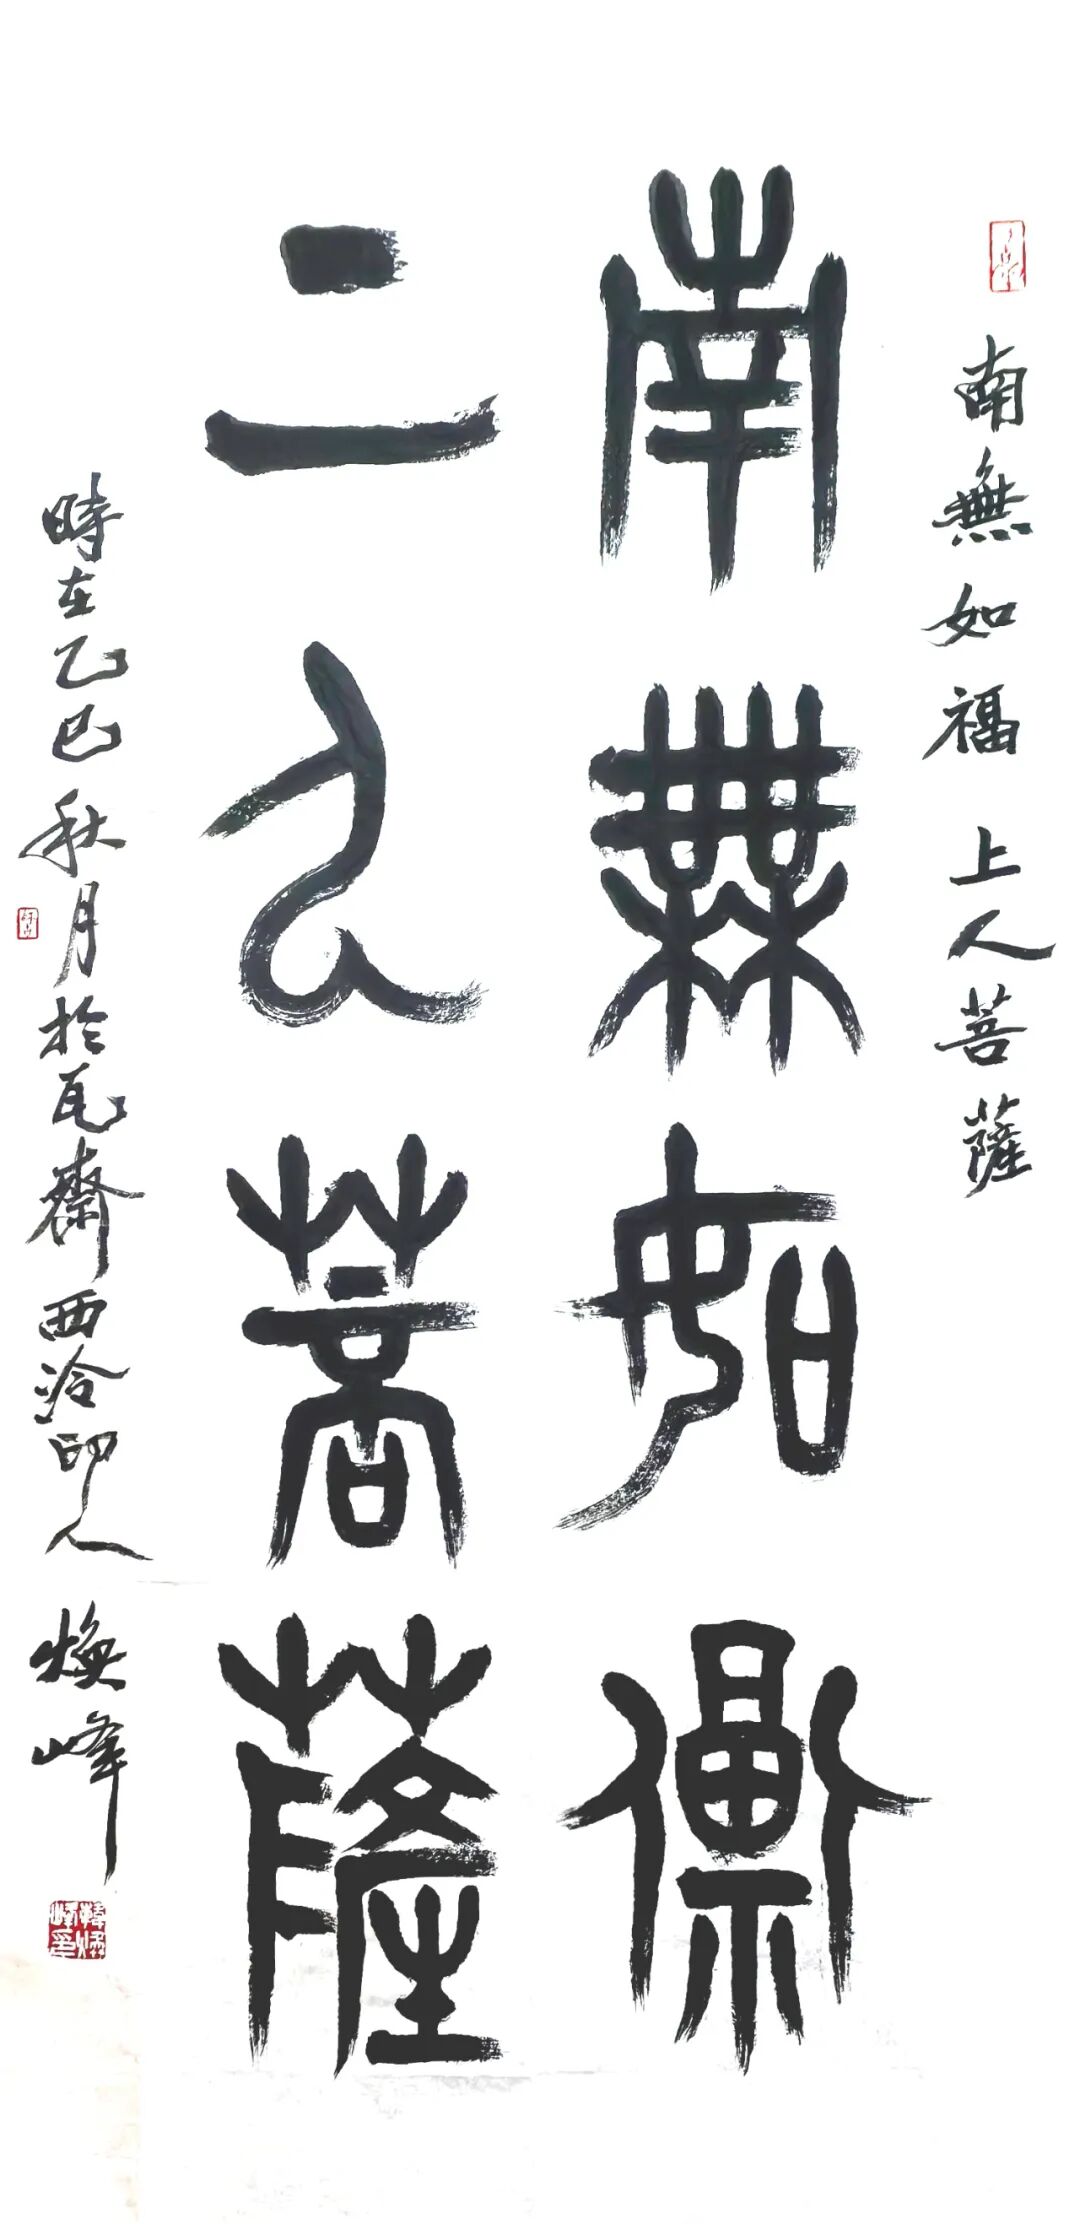 南無如福上人菩薩
南無如福
二人菩薩
時在乙巳秋月於瓦齋西泠印人
煥峰